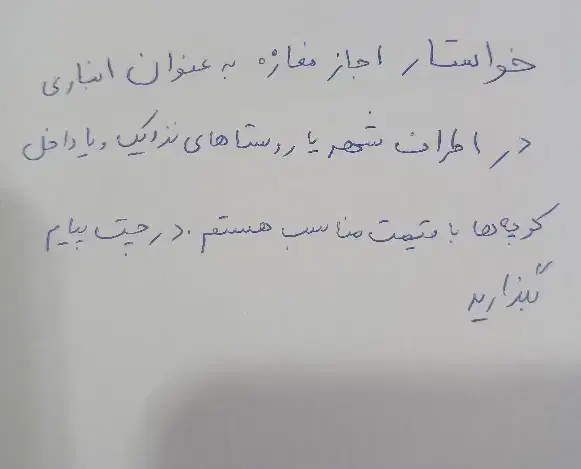 خواستار اجاز مغازه به عنوان انباری
در اطراف شهر یا روستاهای نزدیک و یا داخل
کوچه‌ها با قیمت مناسب هستم. در چت پیام
بگذارید